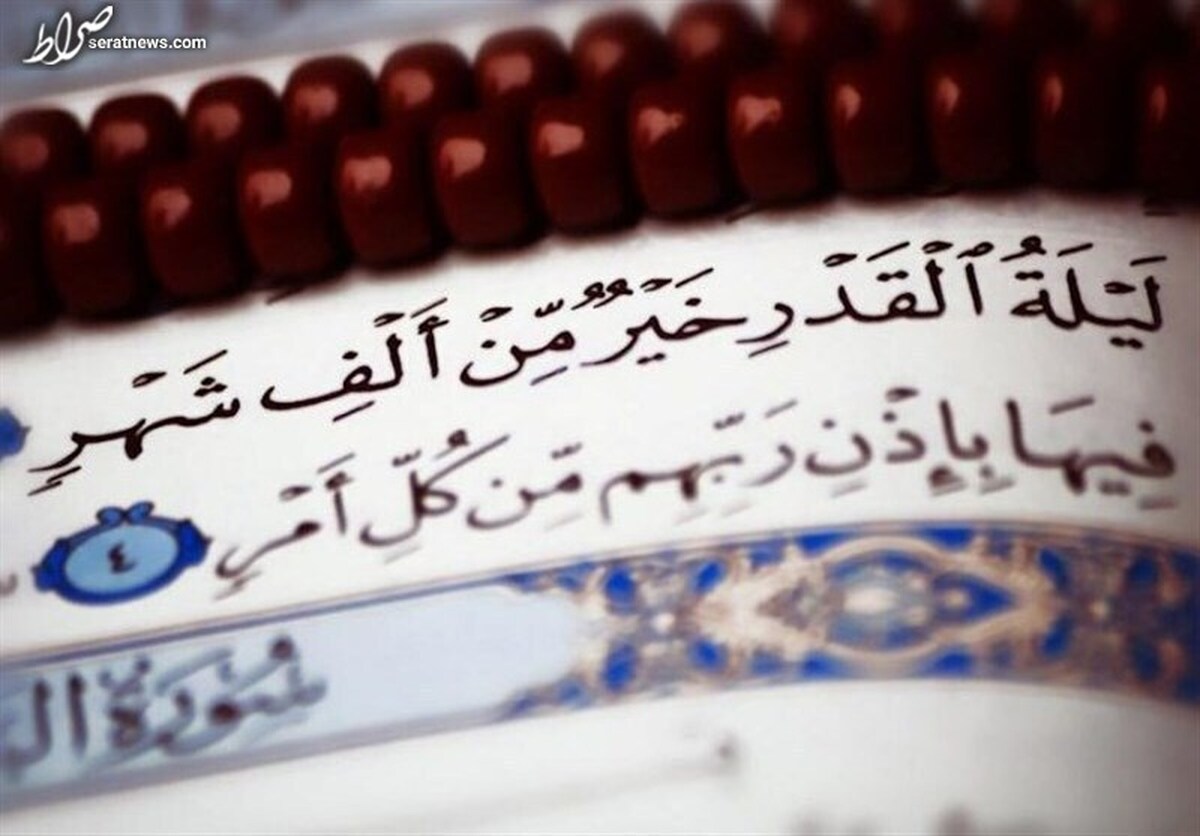 صراط
seratnews.com
لَيْلَةُ ٱلْقَدْرِ خَيْرٌ مِّنْ أَلْفِ شَهْرٍ
فِيهَا بِإِذْنِ رَبِّهِم مِّن كُلِّ أَمْرٍ ٤
سُورَةُ